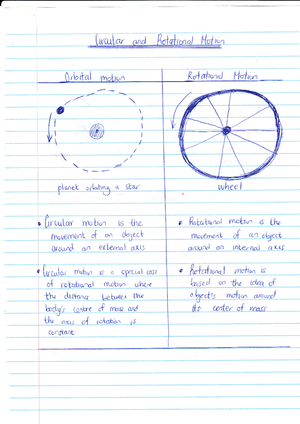 Circular and Rotational Motion
Orbital motion
Rotational Motion
planet orbiting a star
wheel
• Circular motion is the
movement of an object
around an external axis
• Circular motion is a special case
of rotational motion where
the distance between the
body's centre of mass and
the axis of rotation is
constant
• Rotational motion is the
movement of an object
around an internal axis
• Rotational motion is
based on the idea of
object's motion around
its center of mass